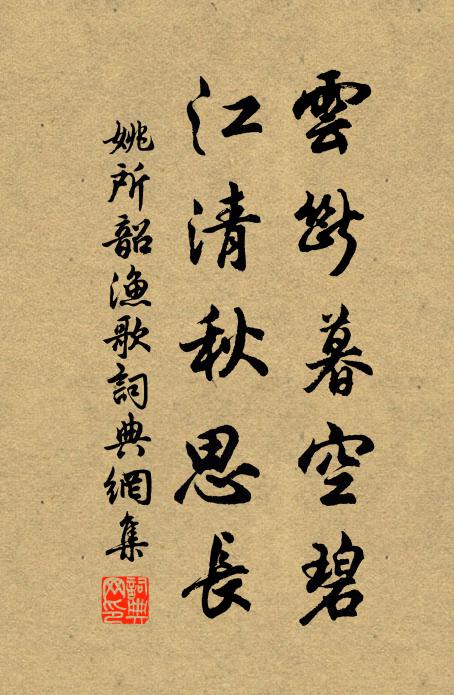 雲斷暮空碧
江清秋思長
姚所韶漁歌詞典網集
詞典网印